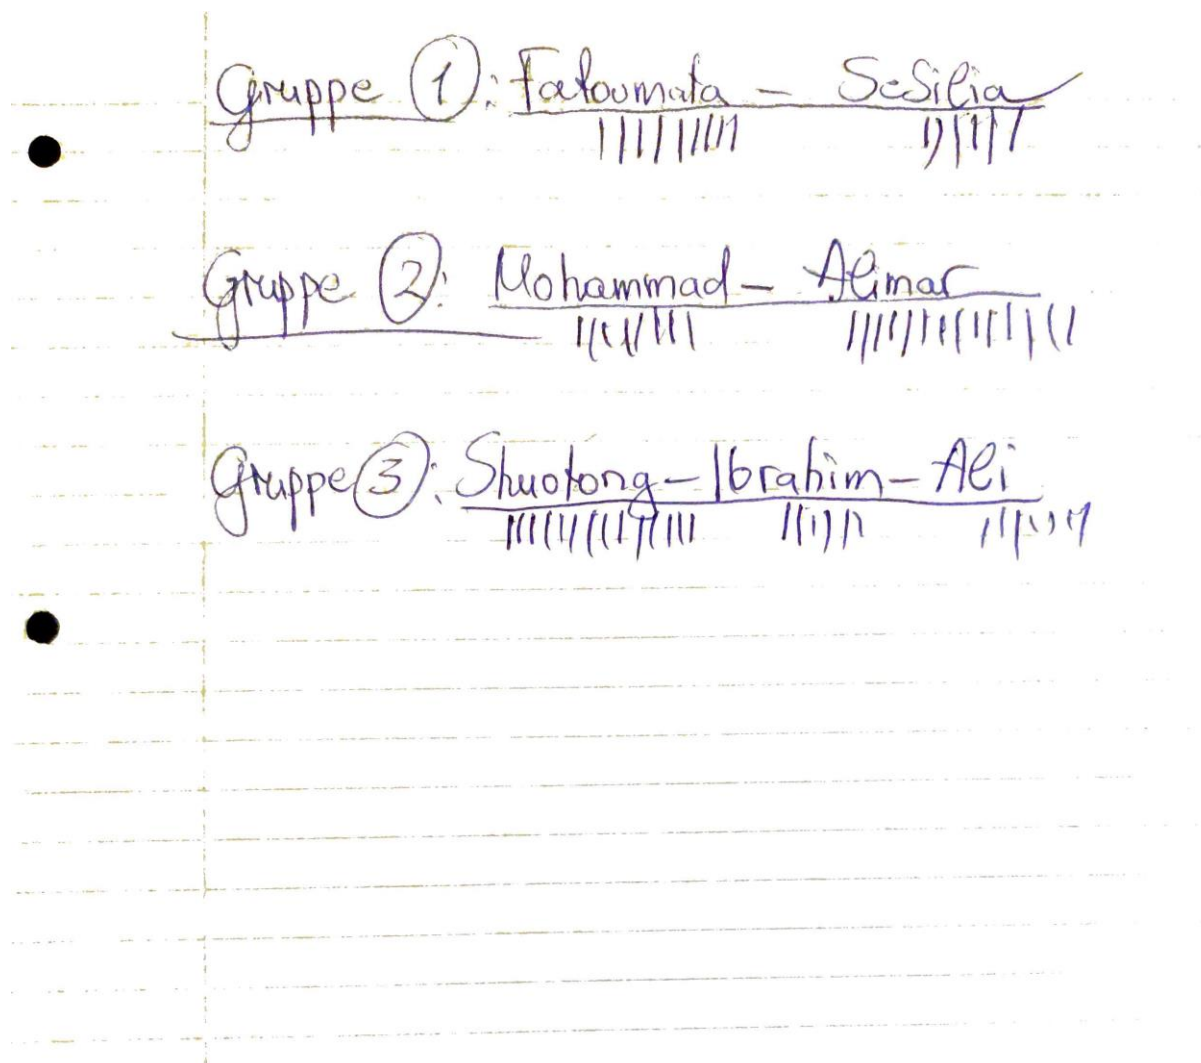 Gruppe 1: Fatoumata – SeSilia
||||||||| ||||||
Gruppe 2: Mohammad – Alimar
|||||||| ||||||||||||||
Gruppe 3: Shuotong – Ibrahim – Ali